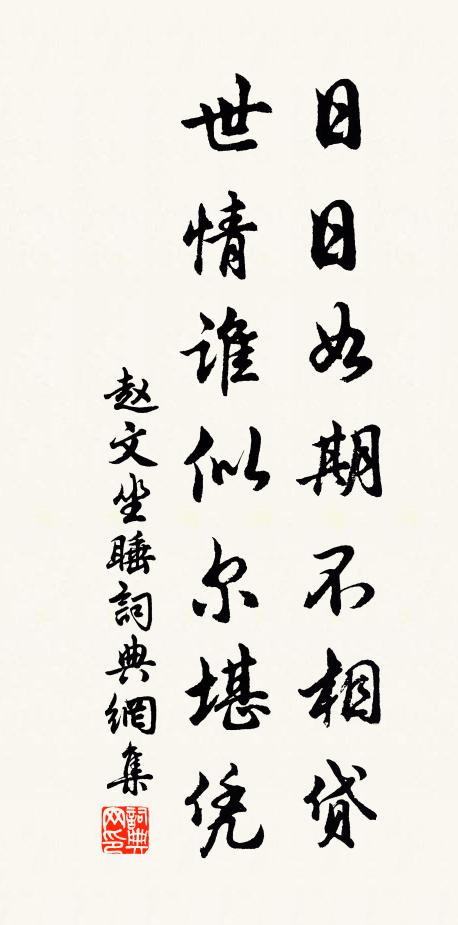 日日如期不相贷
世情谁似尔堪凭
赵文坐睡詞典網集
詞典网印